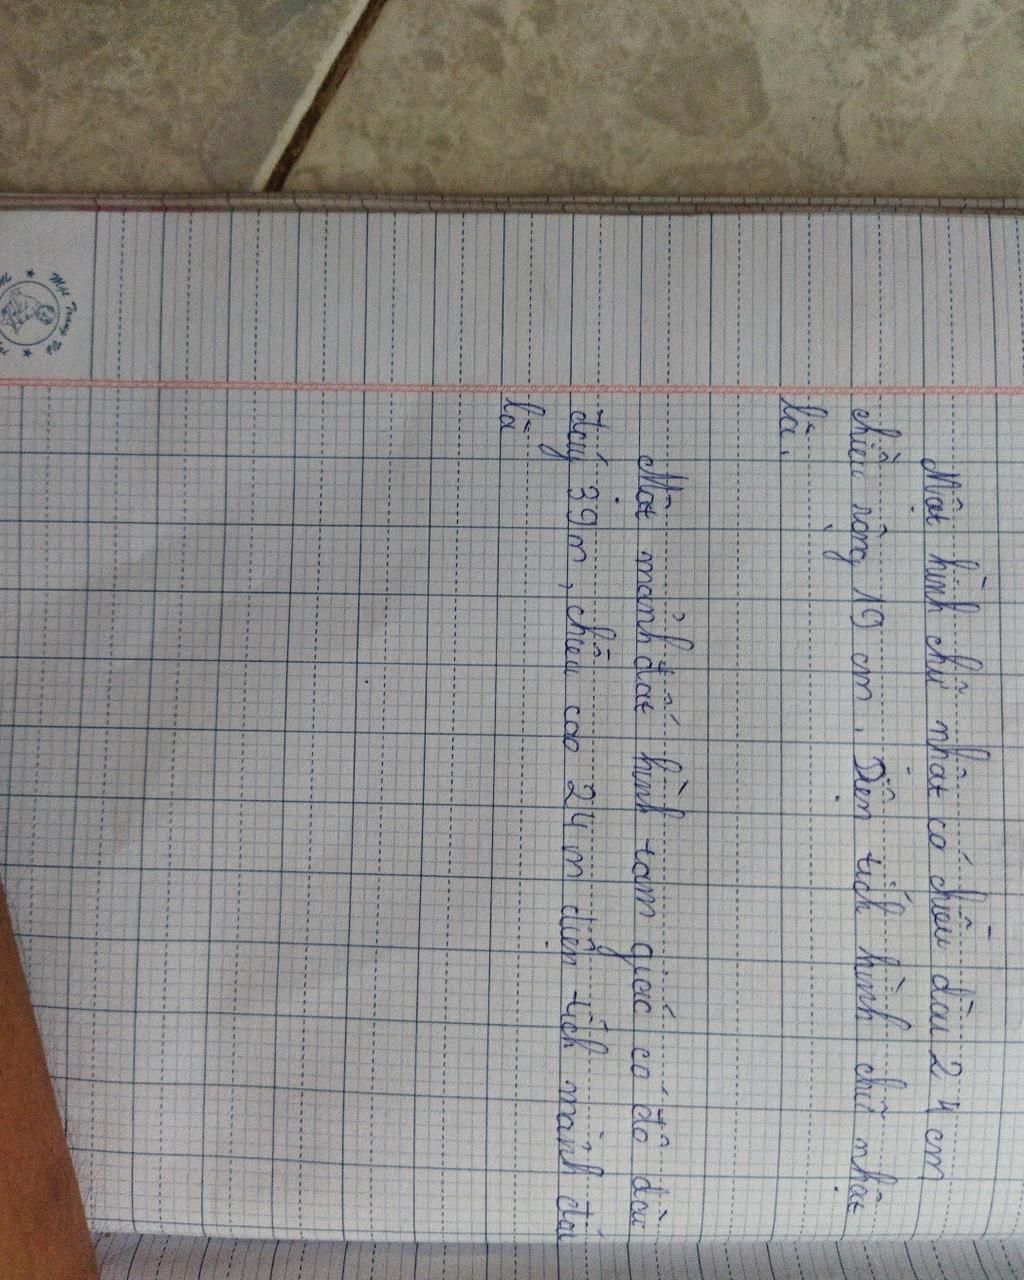 Một hình chữ nhật có chiều dài 24 cm
chiều rộng 19 cm. Diện tích hình chữ nhật
là.
Một mảnh đất hình tam giác có độ dài
đáy 39m, chiều cao 24 m diện tích mảnh đất
là
Một Tháng Tư